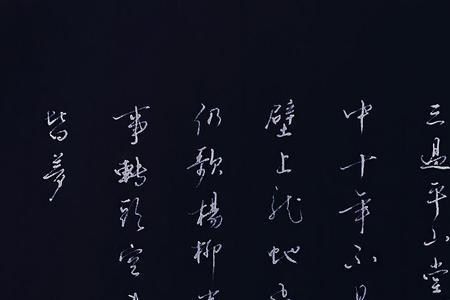 三過平山堂
中十年不
壁上龍蛇
仍歌楊柳
事轉頭空
皆夢